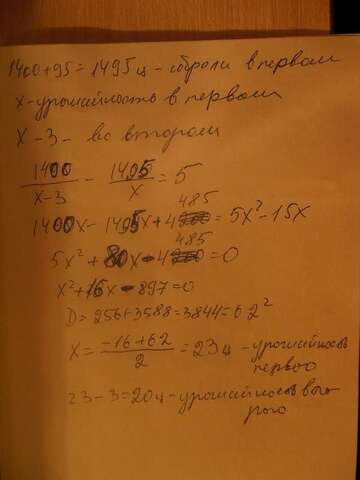 1400+95=1495ц - собрали в первом
х - урожайность в первом
х - 3 - во втором
1400/(х-3) - 1495/х = 5
1400х - 1495х + 4485 = 5х² - 15х
5х² + 80х - 4485 = 0
х² + 16х - 897 = 0
D = 256 + 3588 = 3844 = 62²
х = (-16+62)/2 = 23ц - урожайность первого
23 - 3 = 20ц - урожайность второго